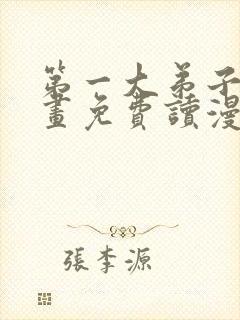 第一大弟子
畫免費讀漫
張李源